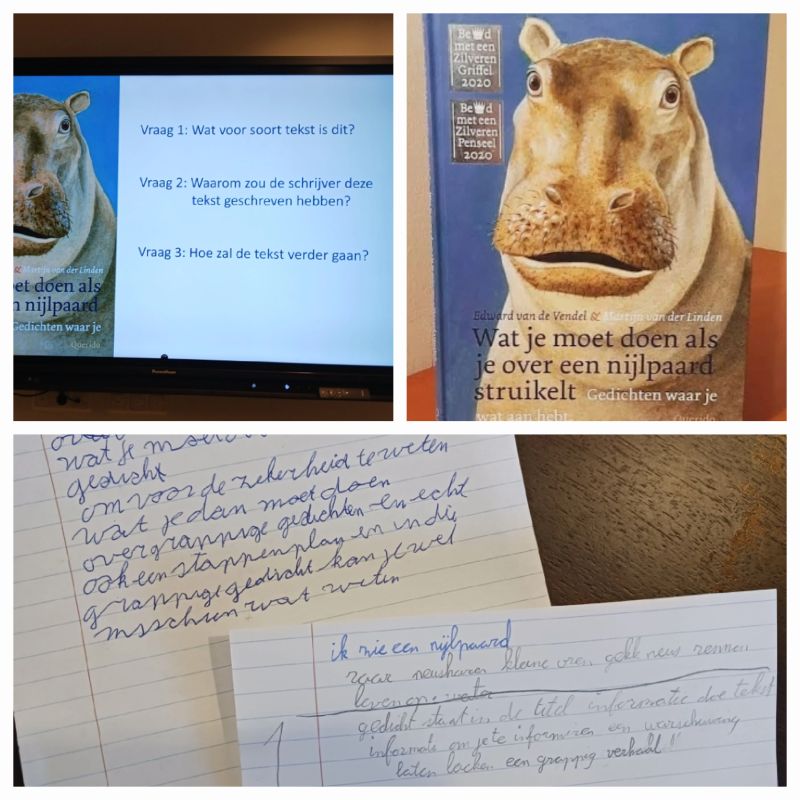 Vraag 1: Wat voor soort tekst is dit?
Vraag 2: Waarom zou de schrijver deze
tekst geschreven hebben?
Vraag 3: Hoe zal de tekst verder gaan?
& Martijn van der Linden
et doen als
n nijlpaard
Gedichten waar je
Querido
Be
d
met een
Zilveren
Griffel
2020
Be
d
met een
Zilveren
Penseel
2020
Edward van de Vendel & Martijn van der Linden
Wat je moet doen als
je over een nijlpaard
struikelt Gedichten waar je
wat aan hebt.
Querido
wat je
gedicht
om voor de zekerheid te weten
wat je dan moet doen
over grappige gedichten en echt
ook een stappenplan en in die
grappige gedicht kan je wel
msschien wat weten
ik zie een nijlpaard
raar neusharen kleine oren gekk neus rennen
leven op water
gedicht staat in de titel informatie doe tekst
informals om je te informeren een warschuwing
laten lachen een grappig verhaal!!